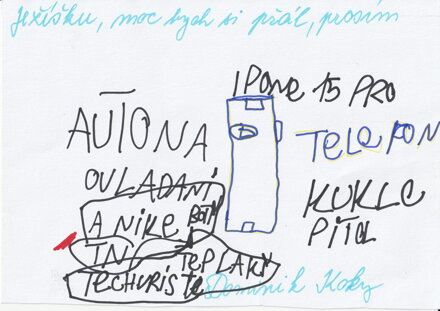 Ježíšku, moc bych si přál, prosím
IPONE 15 PRO
AUTONA
TELEFON
OVLADANÍ
A NIKE BOTY
KUKLC
PÍTCL
TN
TEPLAKY
TECHURISTE
Dominik